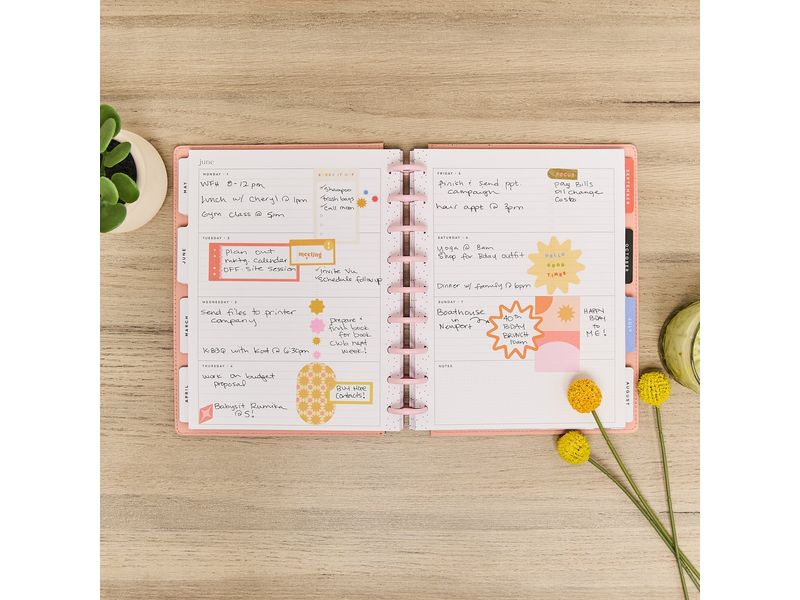 june
MONDAY • 1
WFH 8-12 pm
lunch w/ Cheryl @ 1pm
Gym class @ 5pm
shampoo
fresh bags
call mom
TUESDAY • 2
Plan out
mktg. calendar
OFF-Site session
meeting
!
Invite Vu
Schedule followup
WEDNESDAY • 3
Send files to printer
company
K-BBQ with Kat @ 6:30pm
prepare +
finish book
for book
club next
week!
THURSDAY • 4
work on budget
proposal
Babysit Rumika
@ 5!
BUY MORE
Contacts!
MAY
JUNE
MARCH
APRIL
FRIDAY • 5
finish + send ppt.
campaign
hair appt @ 3pm
FOCUS
pay bills
oil change
Costco
SATURDAY • 6
Yoga @ 8am
Shop for Bday outfit
Dinner w/ family @ 6pm
HELLO
GOOD
TIMES
SUNDAY • 7
Boathouse
in
Newport
40th
BDAY
BRUNCH
10am
HAPPY
BDAY
to
ME!
NOTES
SEPTEMBER
OCTOBER
JULY
AUGUST